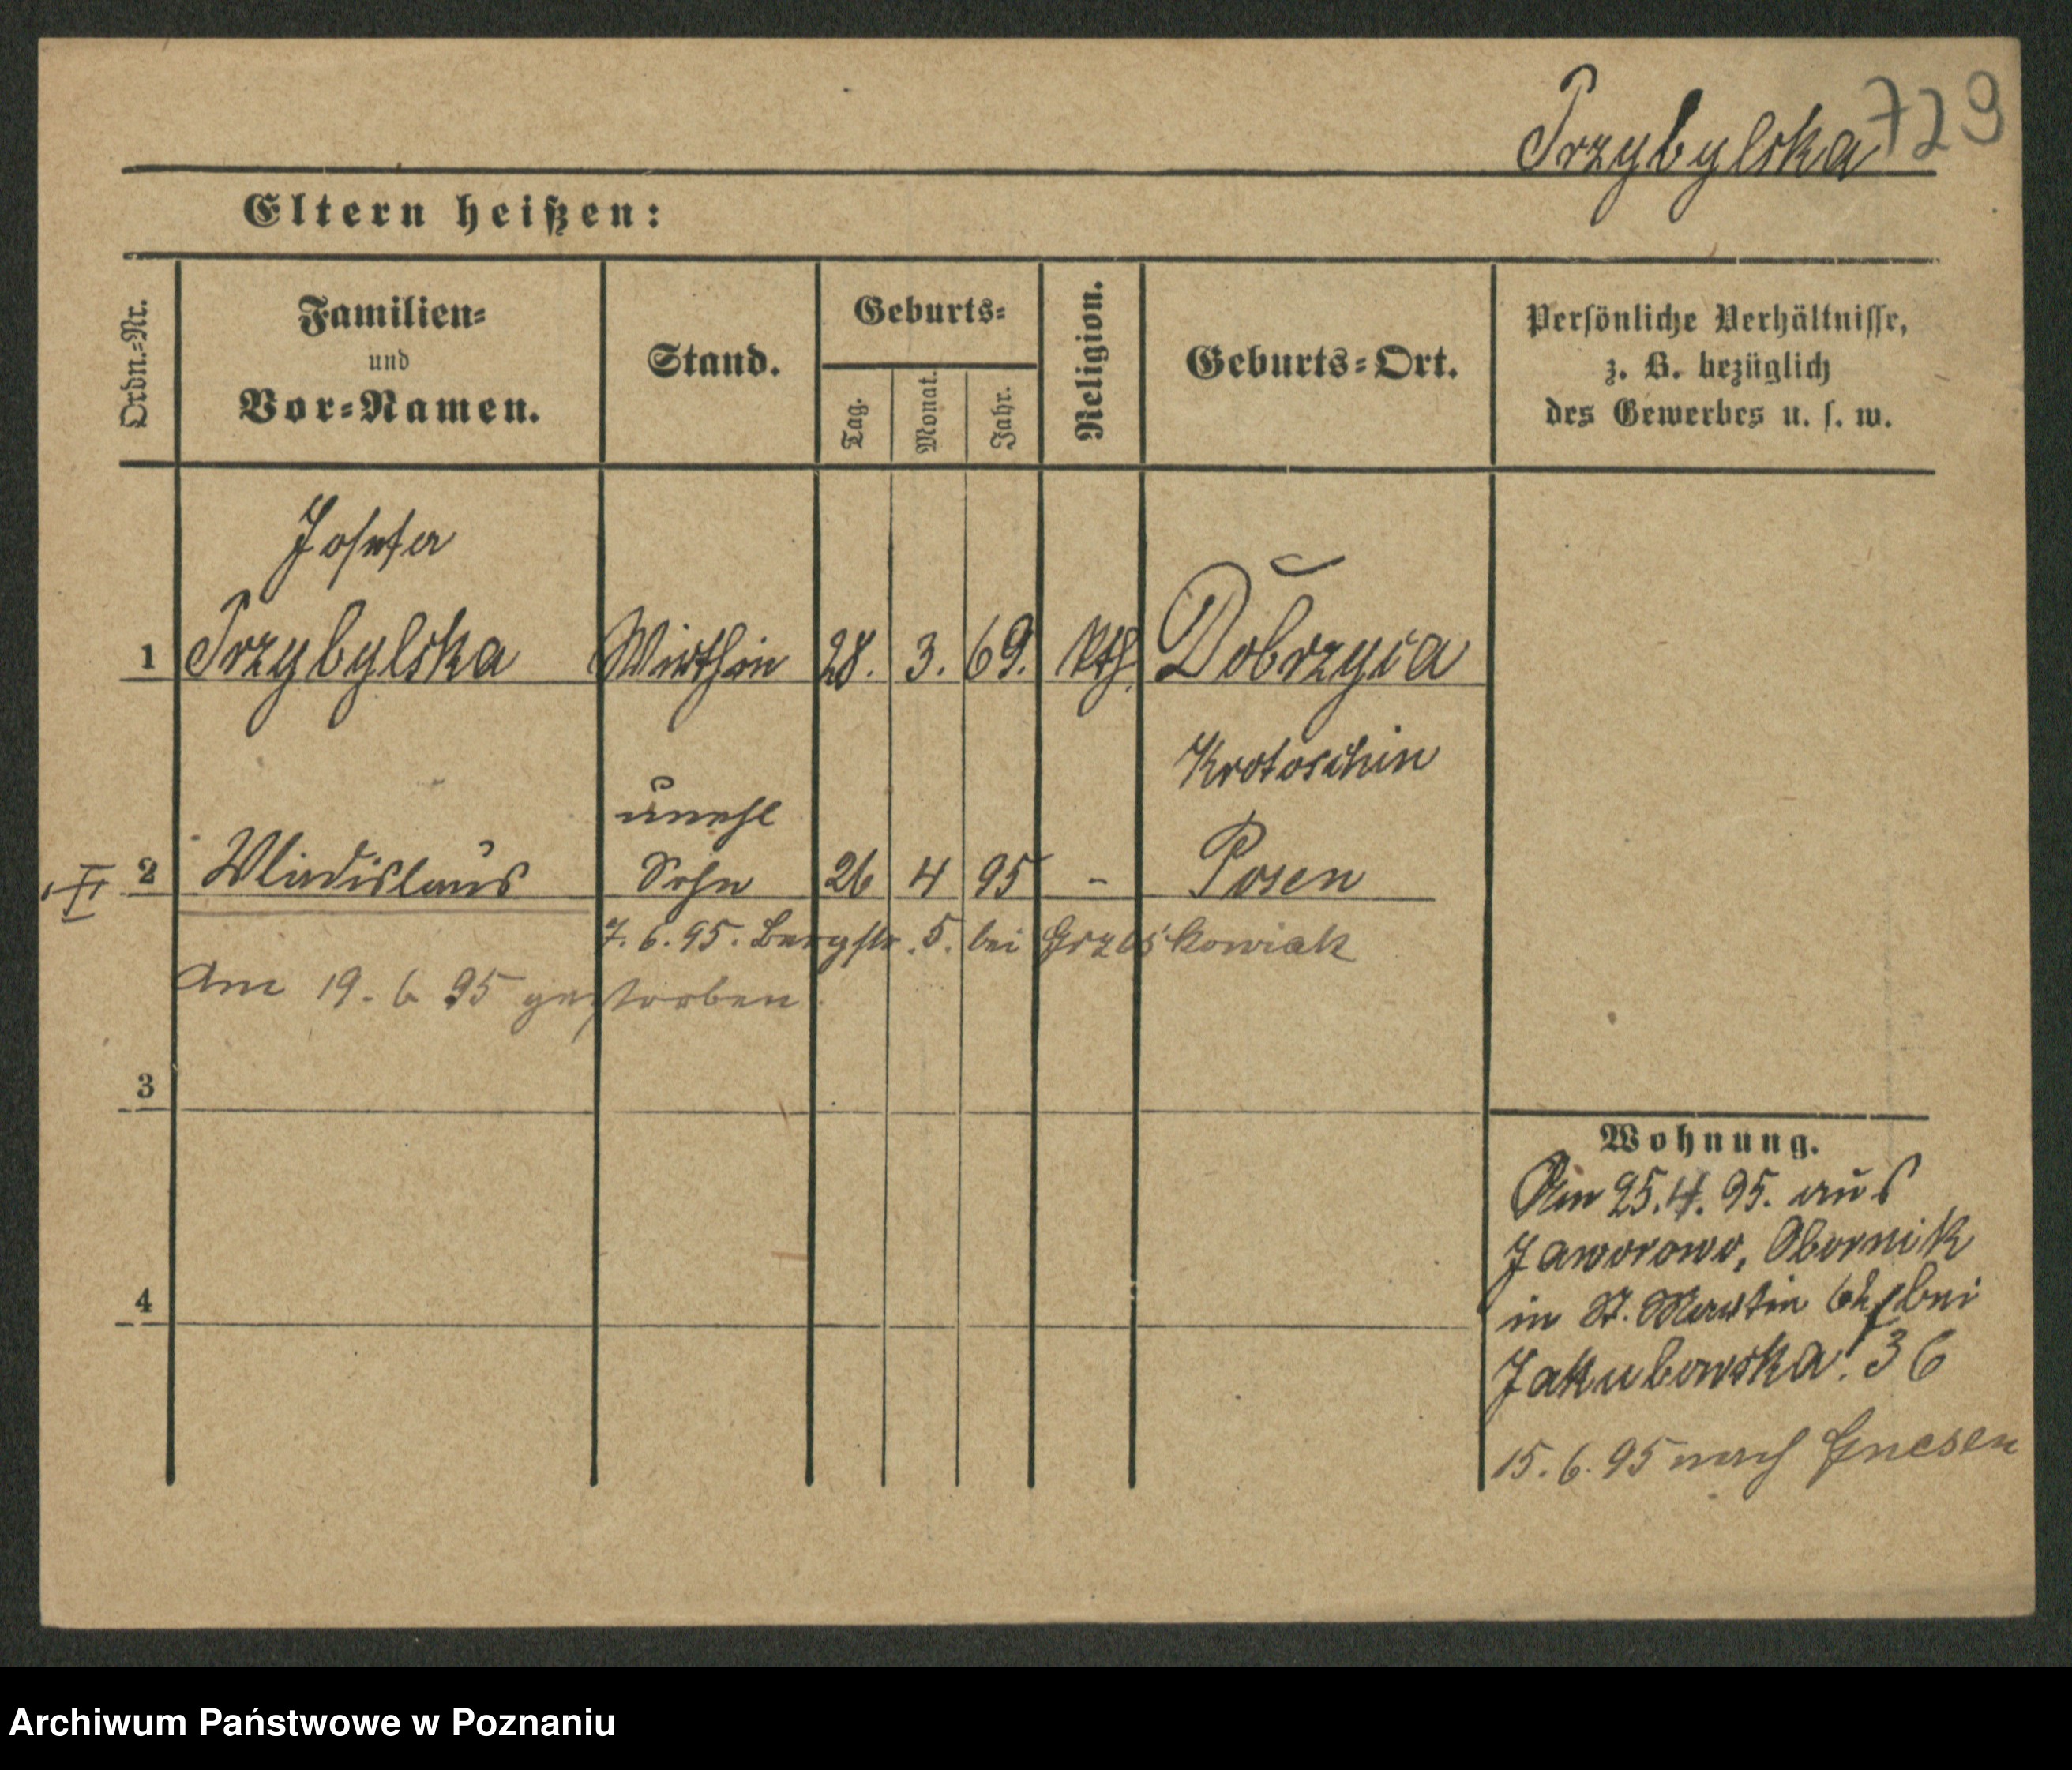 Przybylska 729
Eltern heißen:
Ordn.-Nr.
Familien-
und
Vor-Namen.
Stand.
Geburts-
Tag.
Monat.
Jahr.
Religion.
Geburts-Ort.
Persönliche Verhältnisse,
z. B. bezüglich
des Gewerbes u. s. w.
Josefa
1 Przybylska Wirthin 28. 3. 69. kth. Dobrzyca
Krotoschin
unehl
II 2 Wladislaus Sohn 26 4 95 - Posen
7. 6. 95. Bergstr. 5. bei Grzeskowiak
Am 19. 6 95 gestorben.
3
4
Wohnung.
Am 25. 4. 95. aus
Jaworowo, Obornik
in St. Martin bei
Jakubowska. 36
15. 6. 95 nach Gnesen
Archiwum Państwowe w Poznaniu